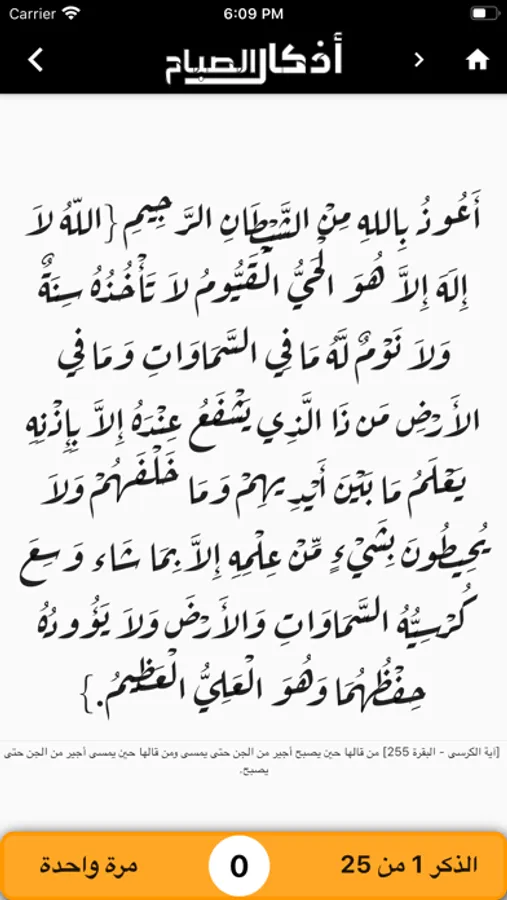 Carrier 6:09 PM
أذكار الصباح
أَعُوذُ بِاللهِ مِنْ الشَّيْطَانِ الرَّجِيمِ {اللّهُ لاَ
إِلَهَ إِلاَّ هُوَ الْحَيُّ الْقَيُّومُ لاَ تَأْخُذُهُ سِنَةٌ
وَلاَ نَوْمٌ لَّهُ مَا فِي السَّمَاوَاتِ وَمَا فِي
الأَرْضِ مَن ذَا الَّذِي يَشْفَعُ عِنْدَهُ إِلاَّ بِإِذْنِهِ
يَعْلَمُ مَا بَيْنَ أَيْدِيهِمْ وَمَا خَلْفَهُمْ وَلاَ
يُحِيطُونَ بِشَيْءٍ مِّنْ عِلْمِهِ إِلاَّ بِمَا شَاء وَسِعَ
كُرْسِيُّهُ السَّمَاوَاتِ وَالأَرْضَ وَلاَ يَؤُودُهُ
حِفْظُهُمَا وَهُوَ الْعَلِيُّ الْعَظِيمُ.}
[آية الكرسى - البقرة 255] من قالها حين يصبح أجير من الجن حتى يمسى ومن قالها حين يمسى أجير من الجن حتى
يصبح.
الذكر 1 من 25 0 مرة واحدة